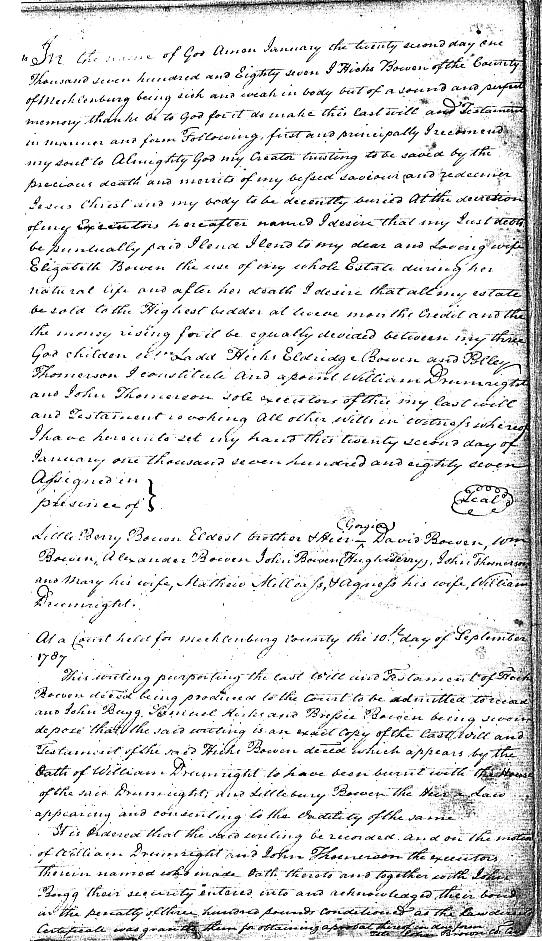 In the name of God Amen January the twenty second day one
Thousand seven hundred and Eighty seven I Hicks Bowen of the County
of Mecklenburg being sick and weak in body but of a sound and perfect
memory thanks be to God for it do make this Last will and Testament
in manner and form Following, first and principally I recomend
my soul to Almighty God my Creator trusting to be saved by the
precious death and merits of my blessed saviour and redeemer
Jesus Christ and my body to be decently buried At the descretion
of my Executors hereafter named I desire that my Just debts
be punctually paid I lend I lend to my dear and Loving wife
Elizabeth Bowen the use of my whole Estate during her
natural life and after her death I desire that all my estate
be sold to the Highest bedder at twelve months Credit and the
the money rising for it be equally devided between my three
God children Ladd Hicks Eldridge Bowen and Polley
Thomerson I constitute And apoint William Drumright
and John Thomerson Sole executors of this my last will
and Testament revoking All other Wills in witness whereof
I have hereunto set my hand this twenty second day of
January one thousand seven hundred and eighty seven
Assigned in
presence of } Seal
Little Berry Bowen Eldest brother & Heir David Bowen, Wm
Bowen, Alexander Bowen John Bowen Hugh Berry, John Thomerson
and Mary his wife, Mathew & Agness his wife, William
Drumright.
At a Court held for Mecklenburg County the 10th day of September
1787
This writing purporting the last Will and Testament of Hicks
Bowen decd being produced to the Court to be admitted to record
and John Bugg Samuel and Bowen being sworn
depose that the said writing is an exact Copy of the Last Will and
Testament of the said Hicks Bowen deced which appears by the
Oath of William Drumright to have been burnt with the House
of the said Drumright and Littlebury Bowen the Heir a Law
appearing and consenting to the Validity of the same
It is Ordered that the said writing be recorded. and on the motion
of William Drumright and John Thomerson the executors
therein named who made Oath thereto and together with John
Bugg their security entered into and acknowledged their bond
in the penalty of three hundred pounds conditioned as the law directs
Certificate was granted them for obtaining a probat thereof in due form
Teste John Brown